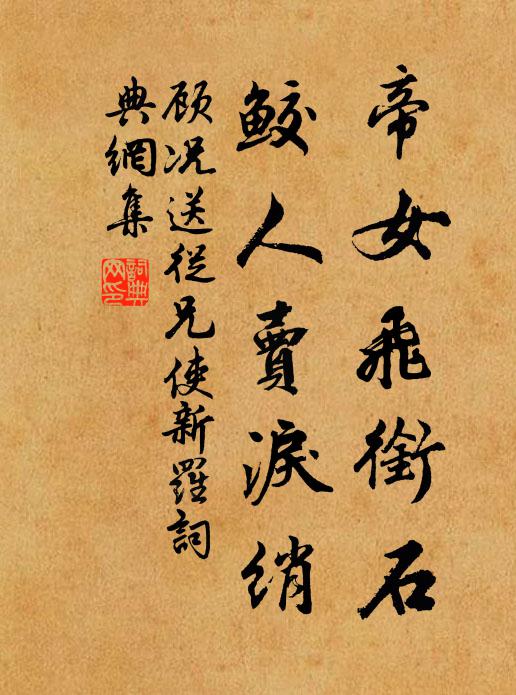 帝女飛銜石
鮫人賣淚綃
顧況送從兄使新羅詞
典網集
詞典網印